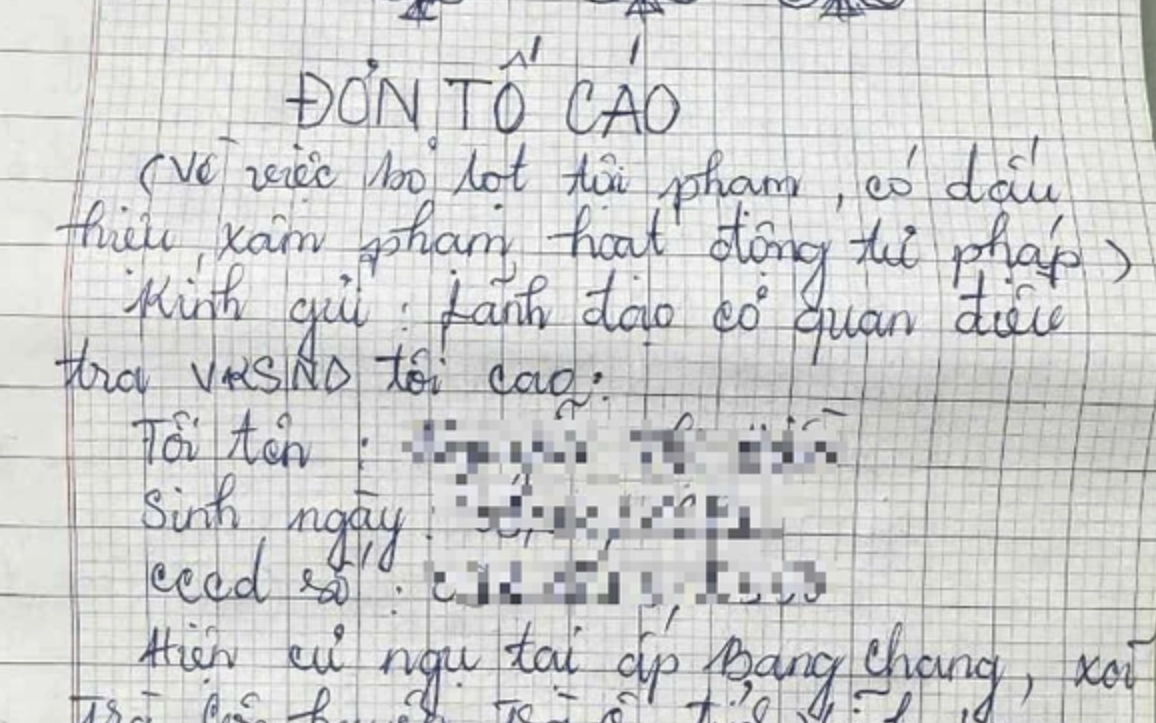 ĐƠN TỐ CÁO
(Về việc bỏ lọt tội phạm, có dấu
hiệu xâm phạm hoạt động tư pháp)
Kính gửi: Lãnh đạo cơ quan điều
tra VKSND tối cao.
Tôi tên :
Sinh ngày :
cccd số :
Hiện cư ngụ tại ấp Bang Chang, xã